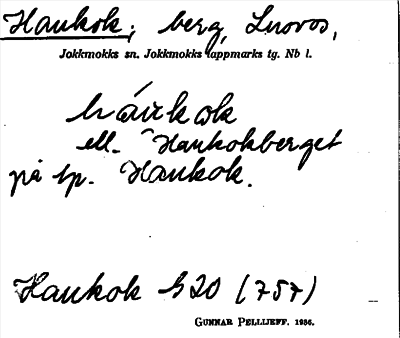 Haukok; berg, Luovos,
Jokkmokks sn. Jokkmokks lappmarks tg. Nb l.
háu̯kok
ell. Haukokberget
på lp. Haukok.
Haukok h20 (757)
GUNNAR PELLIJEFF. 1956.